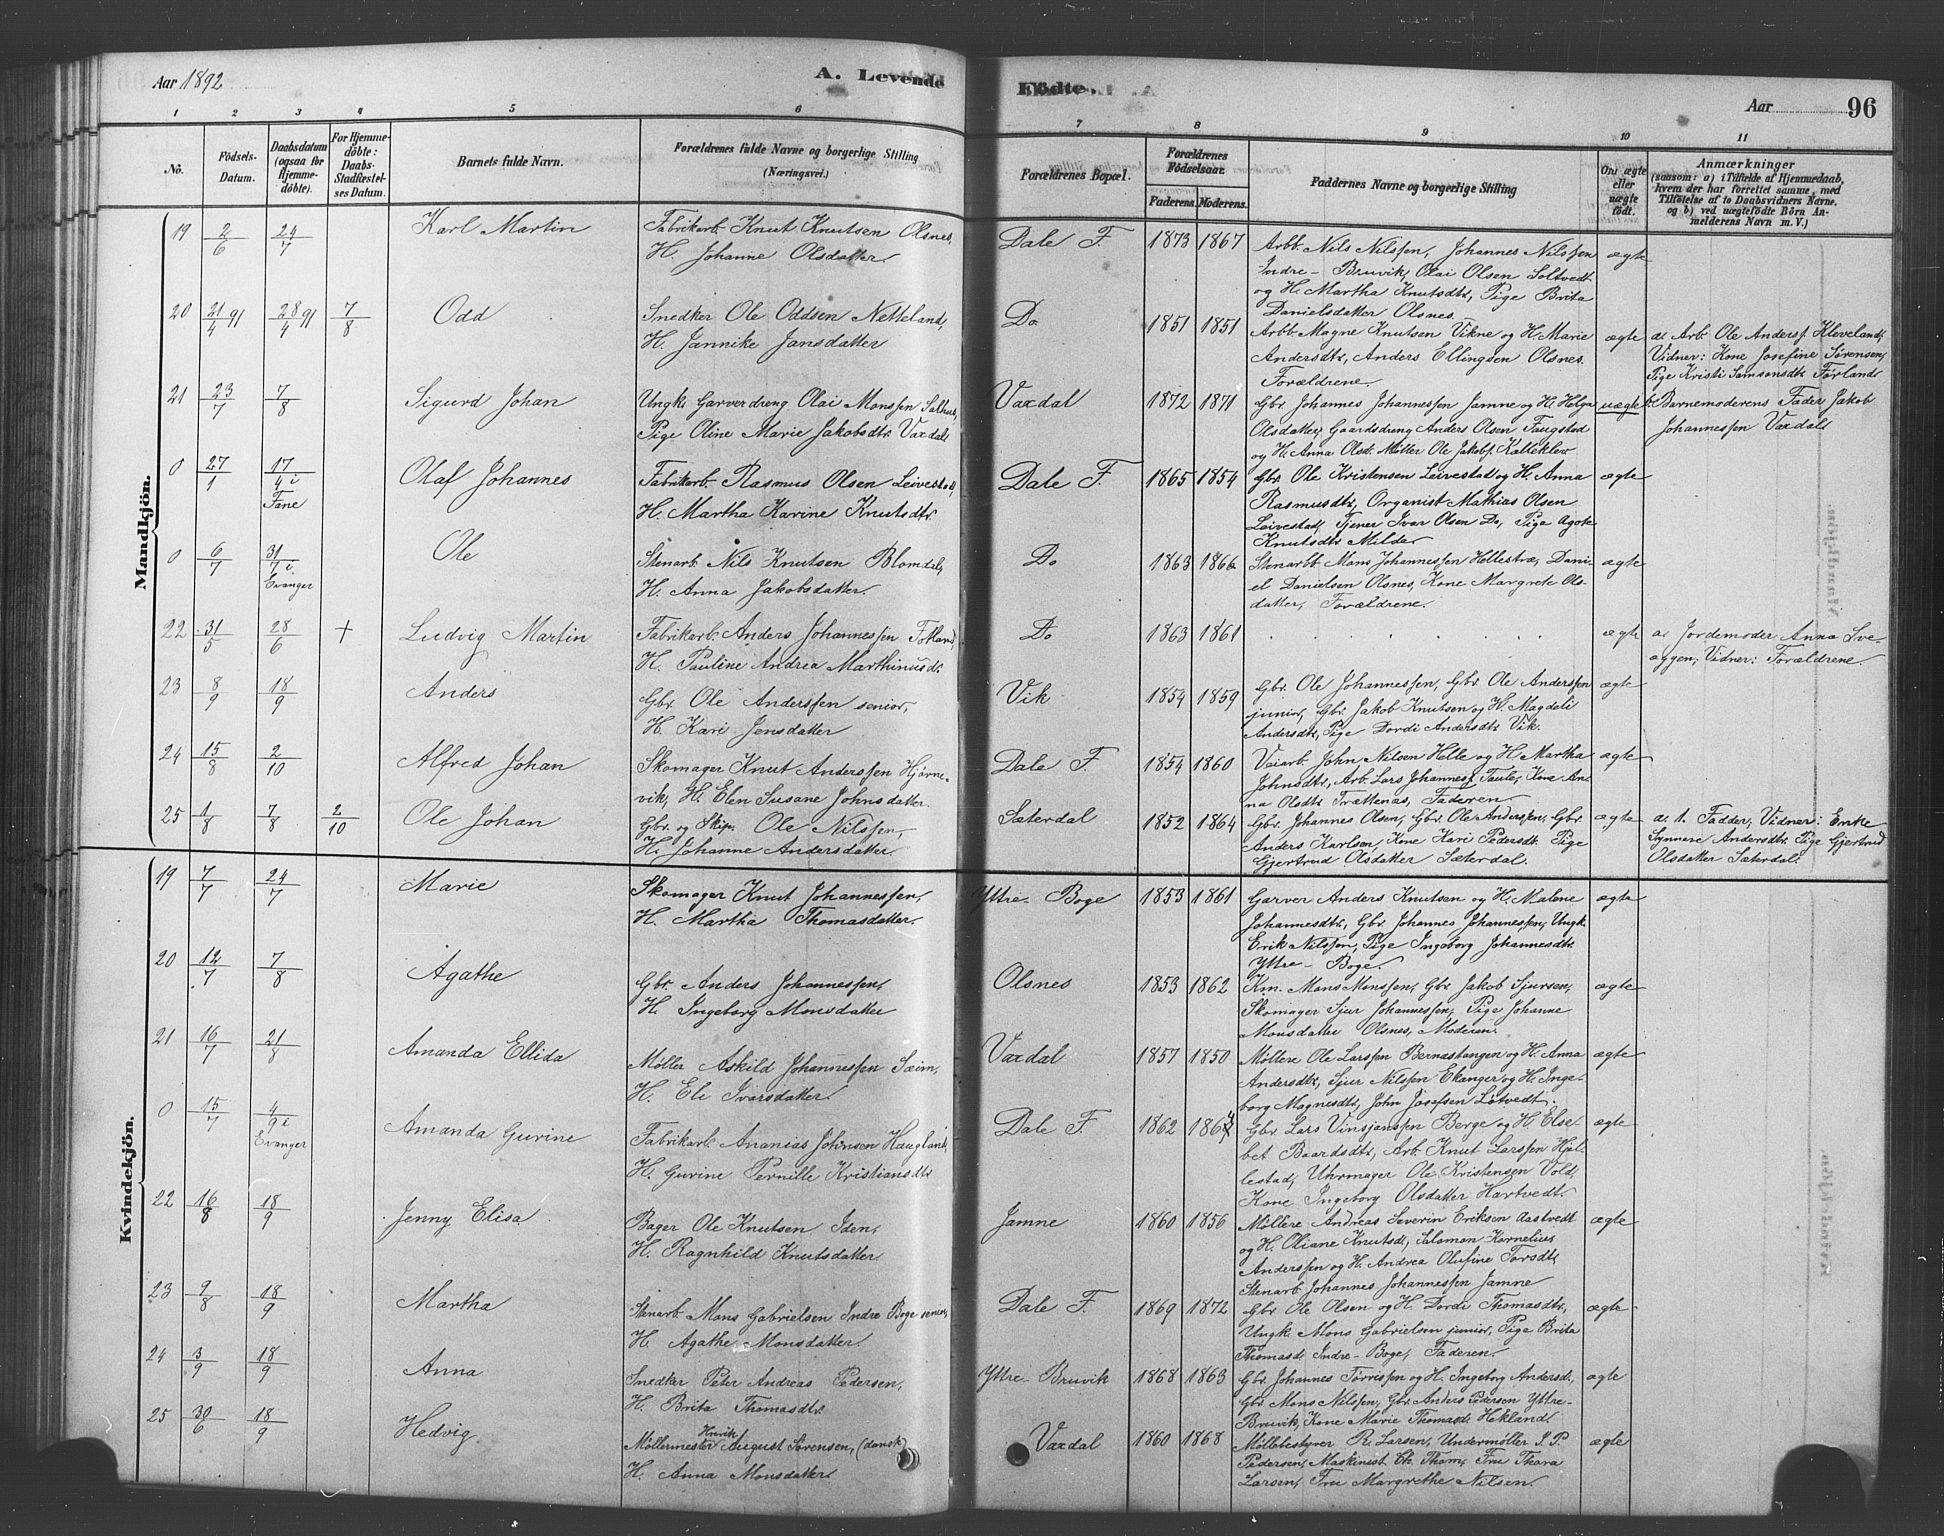 Aar 1892
A. Levende
Födte.
Aar 96
1 2 3 4 5 6 7 8 9 10 11
No.
Födsels-
Datum.
Daabsdatum
(ogsaa for
Hjemme-
döbte).
For Hjemme-
döbte:
Daabs-
Stadfæstel-
ses Datum.
Barnets fulde Navn.
Forældrenes fulde Navne og borgerlige Stilling
(Næringsvei.)
Forældrenes Bopæl.
Forældrenes
Födselsaar.
Faderens. Moderens.
Faddernes Navne og borgerlige Stilling
Om ægte
eller
uægte
födt.
Anmærkninger
(saasom: a) i Tilfælde af Hjemmedaab,
hvem der har forrettet samme, med
Tilföielse af to Daabsvidners Navne,
og b) ved uægtefödte Börn An-
melderens Navn m. V.)
Mandkjön.
19 2/6 24/7 Karl Martin
Fabrikarb. Knut Knutsen Olsnes,
H. Johanne Olsdatter.
Dale F. 1873 1867
Arbb. Nils Nilssen, Johannes Nilssen
Indre-Bruvik, Olai Olsen Soltvedt
og H. Martha Knutsdtr, Pige Brita
Danielsdatter Olsnes.
ægte
20 21/4 91 28/4 91 7/8 Odd
Snedker Ole Oddsen Netteland,
H. Jannike Jansdatter
Do 1851 1851
Arbb. Magne Knutsen Vikne og H. Marie
Andersdtr, Anders Ellingsen Olsnes.
Forældrene.
ægte
a. Arb. Ole Anderss. Kleveland,
Vidner: Kone Josefine Sørensen,
Pige Kristi Samsonsdtr Førland
21 23/7 7/8 Sigurd Johan
Ungk. Garverdreng Olai Monssen Salhus,
Pige Oline Marie Jakobsdtr. Vaxdal
Vaxdal 1872 1871
Gbr. Johannes Johannessen Jamne og H. Helga
Olsdatter, Gaardsdreng Anders Olsen Taugstad
og H. Anna Olsd. Møller Ole Jakobs. Kalleklev
uægte
b. Barnemoderens Fader Jakob
Johannessen Vaxdal
0 27/1 17/4 i Fane Olaf Johannes
Fabrikarb. Rasmus Olsen Leivestad,
H. Martha Karine Knutsdtr.
Dale F. 1865 1854
Gbr. Ole Kristensen Leivestad og H. Anna
Rasmusdtr, Organist Mathias Olsen
Leivestad, Tjener Ivar Olsen Do, Pige Agote
Knutsdtr. Milde
ægte
0 6/7 31/7 i Evanger Ole
Stenarb. Nils Knutsen Blomdal,
H. Anna Jakobsdatter.
Do 1863 1866
Stenarbb. Mons Johannessen Hellestræ, Dani-
el Danielsen Olsnes, Kone Margrete Ols-
datter, Forældrene.
ægte
22 31/5 28/6 + Ludvig Martin
Fabrikarb. Anders Johannessen Totland,
H. Pauline Andrea Marthinusdr.
Do 1863 1861
ægte
a. Jordemoder Anna Sve-
aggen; Vidner: Forældrene.
23 8/9 18/9 Anders
Gbr. Ole Anderssen senior,
H. Kari Jensdatter
Vik 1854 1859
Gbr. Ole Johannessen, Gbr. Ole Anderssen
junior, Gbr. Jakob Knutsen og H. Magdeli
Andersdtr, Pige Dordi Andersdtr Vik.
ægte
24 15/8 2/10 Alfred Johan
Skomager Knut Anderssen Hjørne-
vik, H. Elen Susane Johnsdatter
Dale F. 1854 1860
Veiarb. John Nilsen Helle og H. Martha
Johnsdtr, Arb. Lars Johanness. Taule, Kone An-
na Olsdtr Trættenas, Faderen.
ægte
25 1/8 7/8 2/10 Ole Johan
Gbr. og Skip. Ole Nilssen,
H. Johanne Andersdatter
Sæterdal 1852 1864
Gbr. Johannes Olsen, Gbr. Ole Anderssen, Gbr
Anders Karlsen, Kone Kari Pedersdtr. Pige
Gjertrud Olsdatter Sæterdal.
ægte
a. 1. Fadder, Vidner: Enke
Synneve Andersdtr Pige Gjertrud
Olsdatter Sæterdal
Kvindekjön.
19 7/7 24/7 Marie
Skomager Knut Johannessen,
H. Martha Thomasdatter.
Yttre-Boge 1853 1861
Garver Anders Knutsen og H. Malene
Johannesdtr, Gbr. Johannes Johannessen, Ungk.
Erik Nilssen, Pige Ingeborg Johannesdtr
Yttre-Boge.
ægte
20 12/7 7/8 Agathe
Gbr. Anders Johannessen,
H. Ingeborg Monsdatter
Olsnes 1853 1862
Km. Mons Monssen, Gbr. Jakob Sjursen,
Skomager Sjur Johannessen, Pige Johanne
Monsdatter Olsnes, Moderen.
ægte
21 16/7 21/8 Amanda Ellida
Møller Askild Johannessen Sæim,
H. Eli Ivarsdatter.
Vaxdal 1857 1850
Møllere Ole Larssen Bernastangen og H. Anna
Andersdtr, Sjur Nilssen Ekanger og H. Inge-
borg Magnesdtr, John Josefsen Løtvedt.
ægte
0 15/7 4/9 i Evanger Amanda Gurine
Fabrikarb. Ananias Johnsen Haugland,
H. Gurine Pernille Kristiansdtr
Dale F 1862 1864
Gbr. Lars Vinsjansen Berge og H. Else-
bet Baardsdtr, Arb. Knut Larssen Hjel-
lestad, Uhrmager Ole Kristensen Vold,
Kone Ingeborg Olsdatter Hartvedt.
ægte
22 16/8 18/9 Jenny Elisa
Bager Ole Knutsen Iden,
H. Ragnhild Knutsdatter
Jamne 1860 1856
Møllere Andreas Severin Eriksen Aastvedt
og H. Oliane Knutsd., Salomon Kornelius
Anderssen og H. Andrea Olufine Torsdtr,
Stenarb. Johannes Johannessen Jamne
ægte
23 9/8 18/9 Martha
Stenarb. Mons Gabrielsen Indre Boge senior,
H. Agathe Monsdatter
Dale F. 1869 1872
Gbr. Ole Olsen og H. Dordi Thomasdtr,
Ungk. Mons Gabrielsen junior, Pige Brita
Thomasd. Indre-Boge, Faderen.
ægte
24 3/9 18/9 Anna
Snedker Peter Andreas Pedersen,
H. Brita Thomasdtr.
Yttre-Bruvik 1868 1863
Gbr. Johannes Torrissen og H. Ingeborg Andersd.,
Gbr. Mons Nilssen, Gbr. Anders Pedersen Yttre-
Bruvik, Kone Marie Thomasd. Hekland.
ægte
25 30/6 18/9 Hedvig
Henrik
Møllermester August Sørensen, (dansk)
H. Anna Monsdatter
Vaxdal 1860 1868
Møllebestyrer R. Larsen, Undermøller S. P.
Pedersen, Maskinist Ch. Thom, Fru Thora
Larsen, Fru Margrethe Nilsen.
ægte